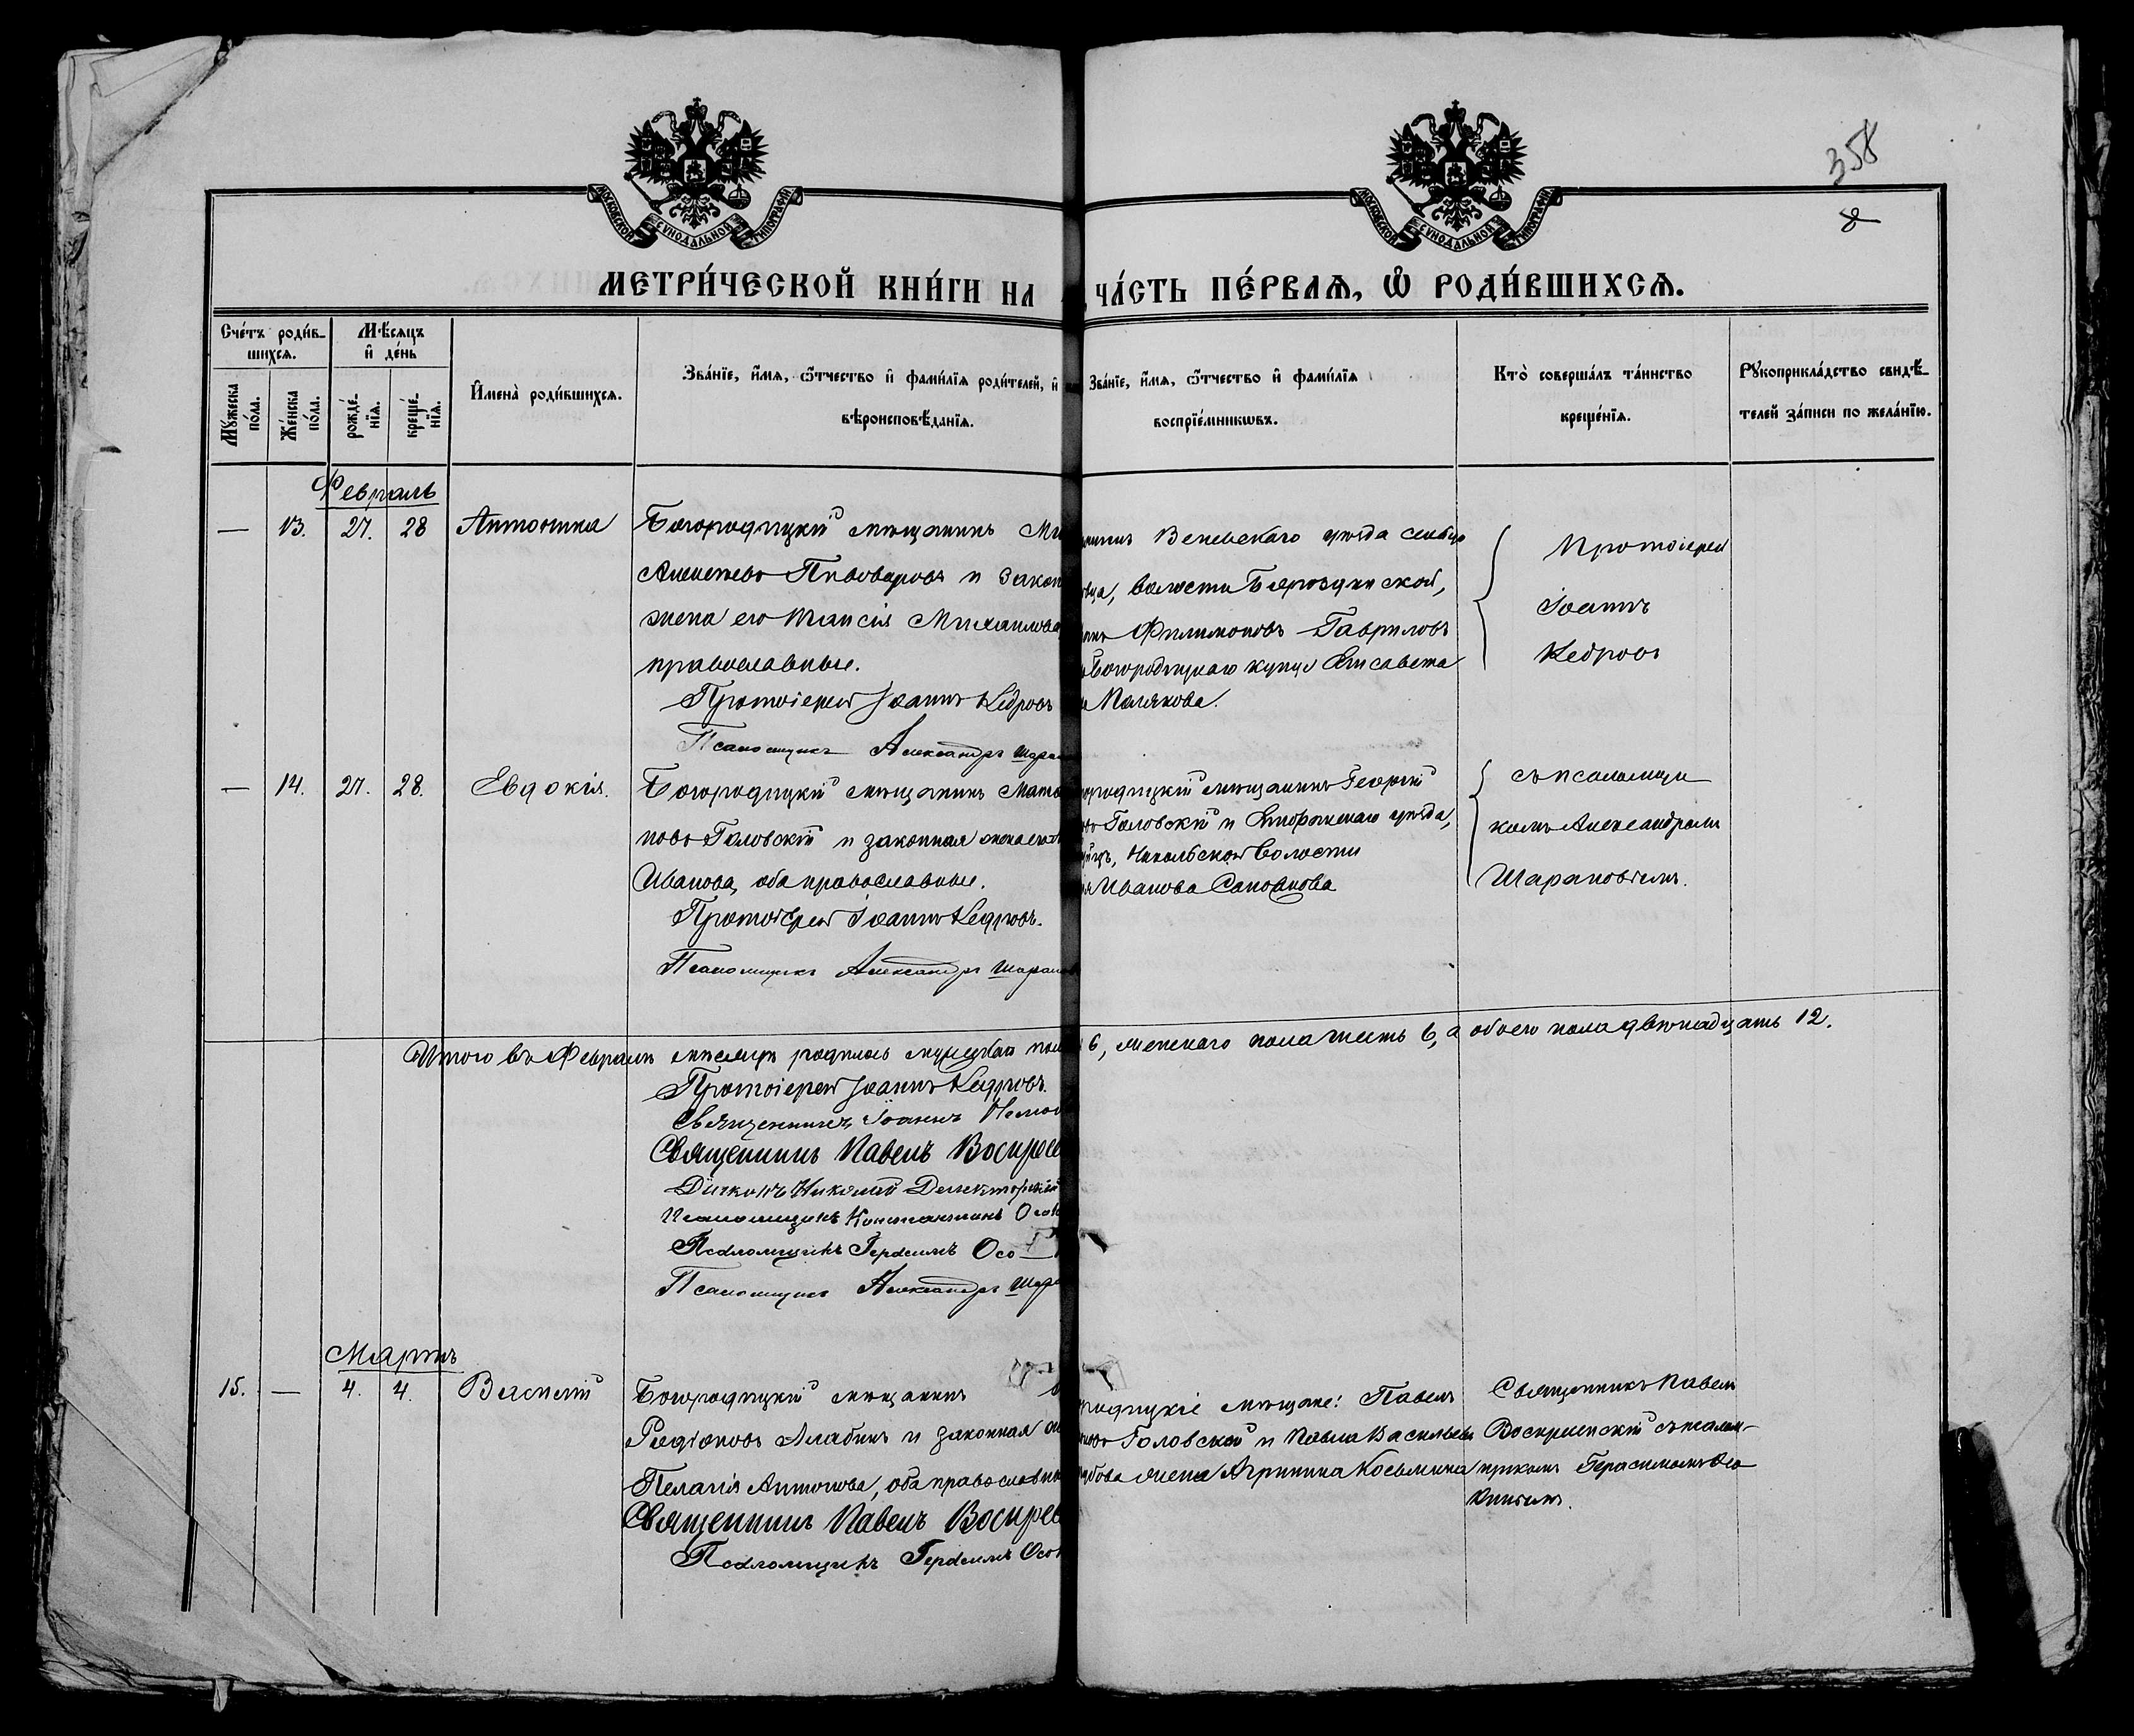 358
8
МОСКОВСКОЙ СѴНОДАЛЬНОЙ ТИПОГРАФІИ
МОСКОВСКОЙ СѴНОДАЛЬНОЙ ТИПОГРАФІИ
МЕТРИ́ЧЕСКОЙ КНИ́ГИ НА
ЧА́СТЬ ПЕ́РВАѦ, Ѽ РОДИ́ВШИХСѦ.
Сче́тъ роди́в-
шихсѧ.
Мꙋ́жеска по́ла.
Же́нска по́ла.
Мѣ́сѧцъ
и҆ де́нь
рожде́-
нїѧ.
креще́-
нїѧ.
И҆мена̀ роди́вшихсѧ.
Зва́нїе, и҆́мѧ, ѻ҆́тчество и҆ фами́лїѧ роди́телей, и҆
вѣроисповѣ́данїѧ.
Зва́нїе, и҆́мѧ, ѻ҆́тчество и҆ фами́лїѧ
воспрїе́мникѡвъ.
Кто̀ соверша́лъ та́инство
креще́нїѧ.
Рꙋкоприкла́дство свидѣ́-
телей за́писи по жела́нїю.
Февраль
— 13. 27. 28 Антонина
Богородицкій мѣщанинъ
Алексѣевъ Пивоваровъ и закон
жена его Таисія Михаилова
православные.
Протоіерей Іоаннъ Кедровъ
Псаломщикъ Александръ Шара
Веневскаго уѣзда сельца
волости
Филимоновъ Гавриловъ
Богородицкаго купца Елисавета
Полякова.
Протоіерей
Іоаннъ
Кедровъ
— 14. 27. 28. Евдокія.
Богородицкій мѣщанинъ
новъ Головскій и законная жена его
Иванова, оба православные.
Протоіерей Іоаннъ Кедровъ.
Псаломщикъ Александръ Шарапов
ородицкій мѣщанинъ Георгій
Головскій и Епифанскаго уѣзда,
Никольской волости
Иванова
съ псаломщи
комъ Александромъ
Шараповымъ.
Итого въ Февралѣ мѣсяцѣ родилось мужеска пола 6, женскаго пола шесть 6, а обоего пола двѣнадцать 12.
Протоіерей Іоаннъ Кедровъ.
Священникъ Іоаннъ
Священникъ Павелъ Воскресе
Діаконъ Николай
Псаломщикъ Константинъ
Псаломщикъ Герасимъ Осо
Псаломщикъ Александръ Шара
Мартъ
15. — 4. 4. Василій
Богородицкій мѣщанинъ
Родіоновъ Алабинъ и законная
Пелагія Антонова, оба православны
Священникъ Павелъ Воскрес
Псаломщикъ Герасимъ Осо
ородицкіе мѣщане: Павелъ
Головской и Павла Васильева
жена Агрипина Косьмина
Священникъ Павелъ
Воскресенскій съ псалом-
щикомъ Герасимомъ Осо
кинымъ.